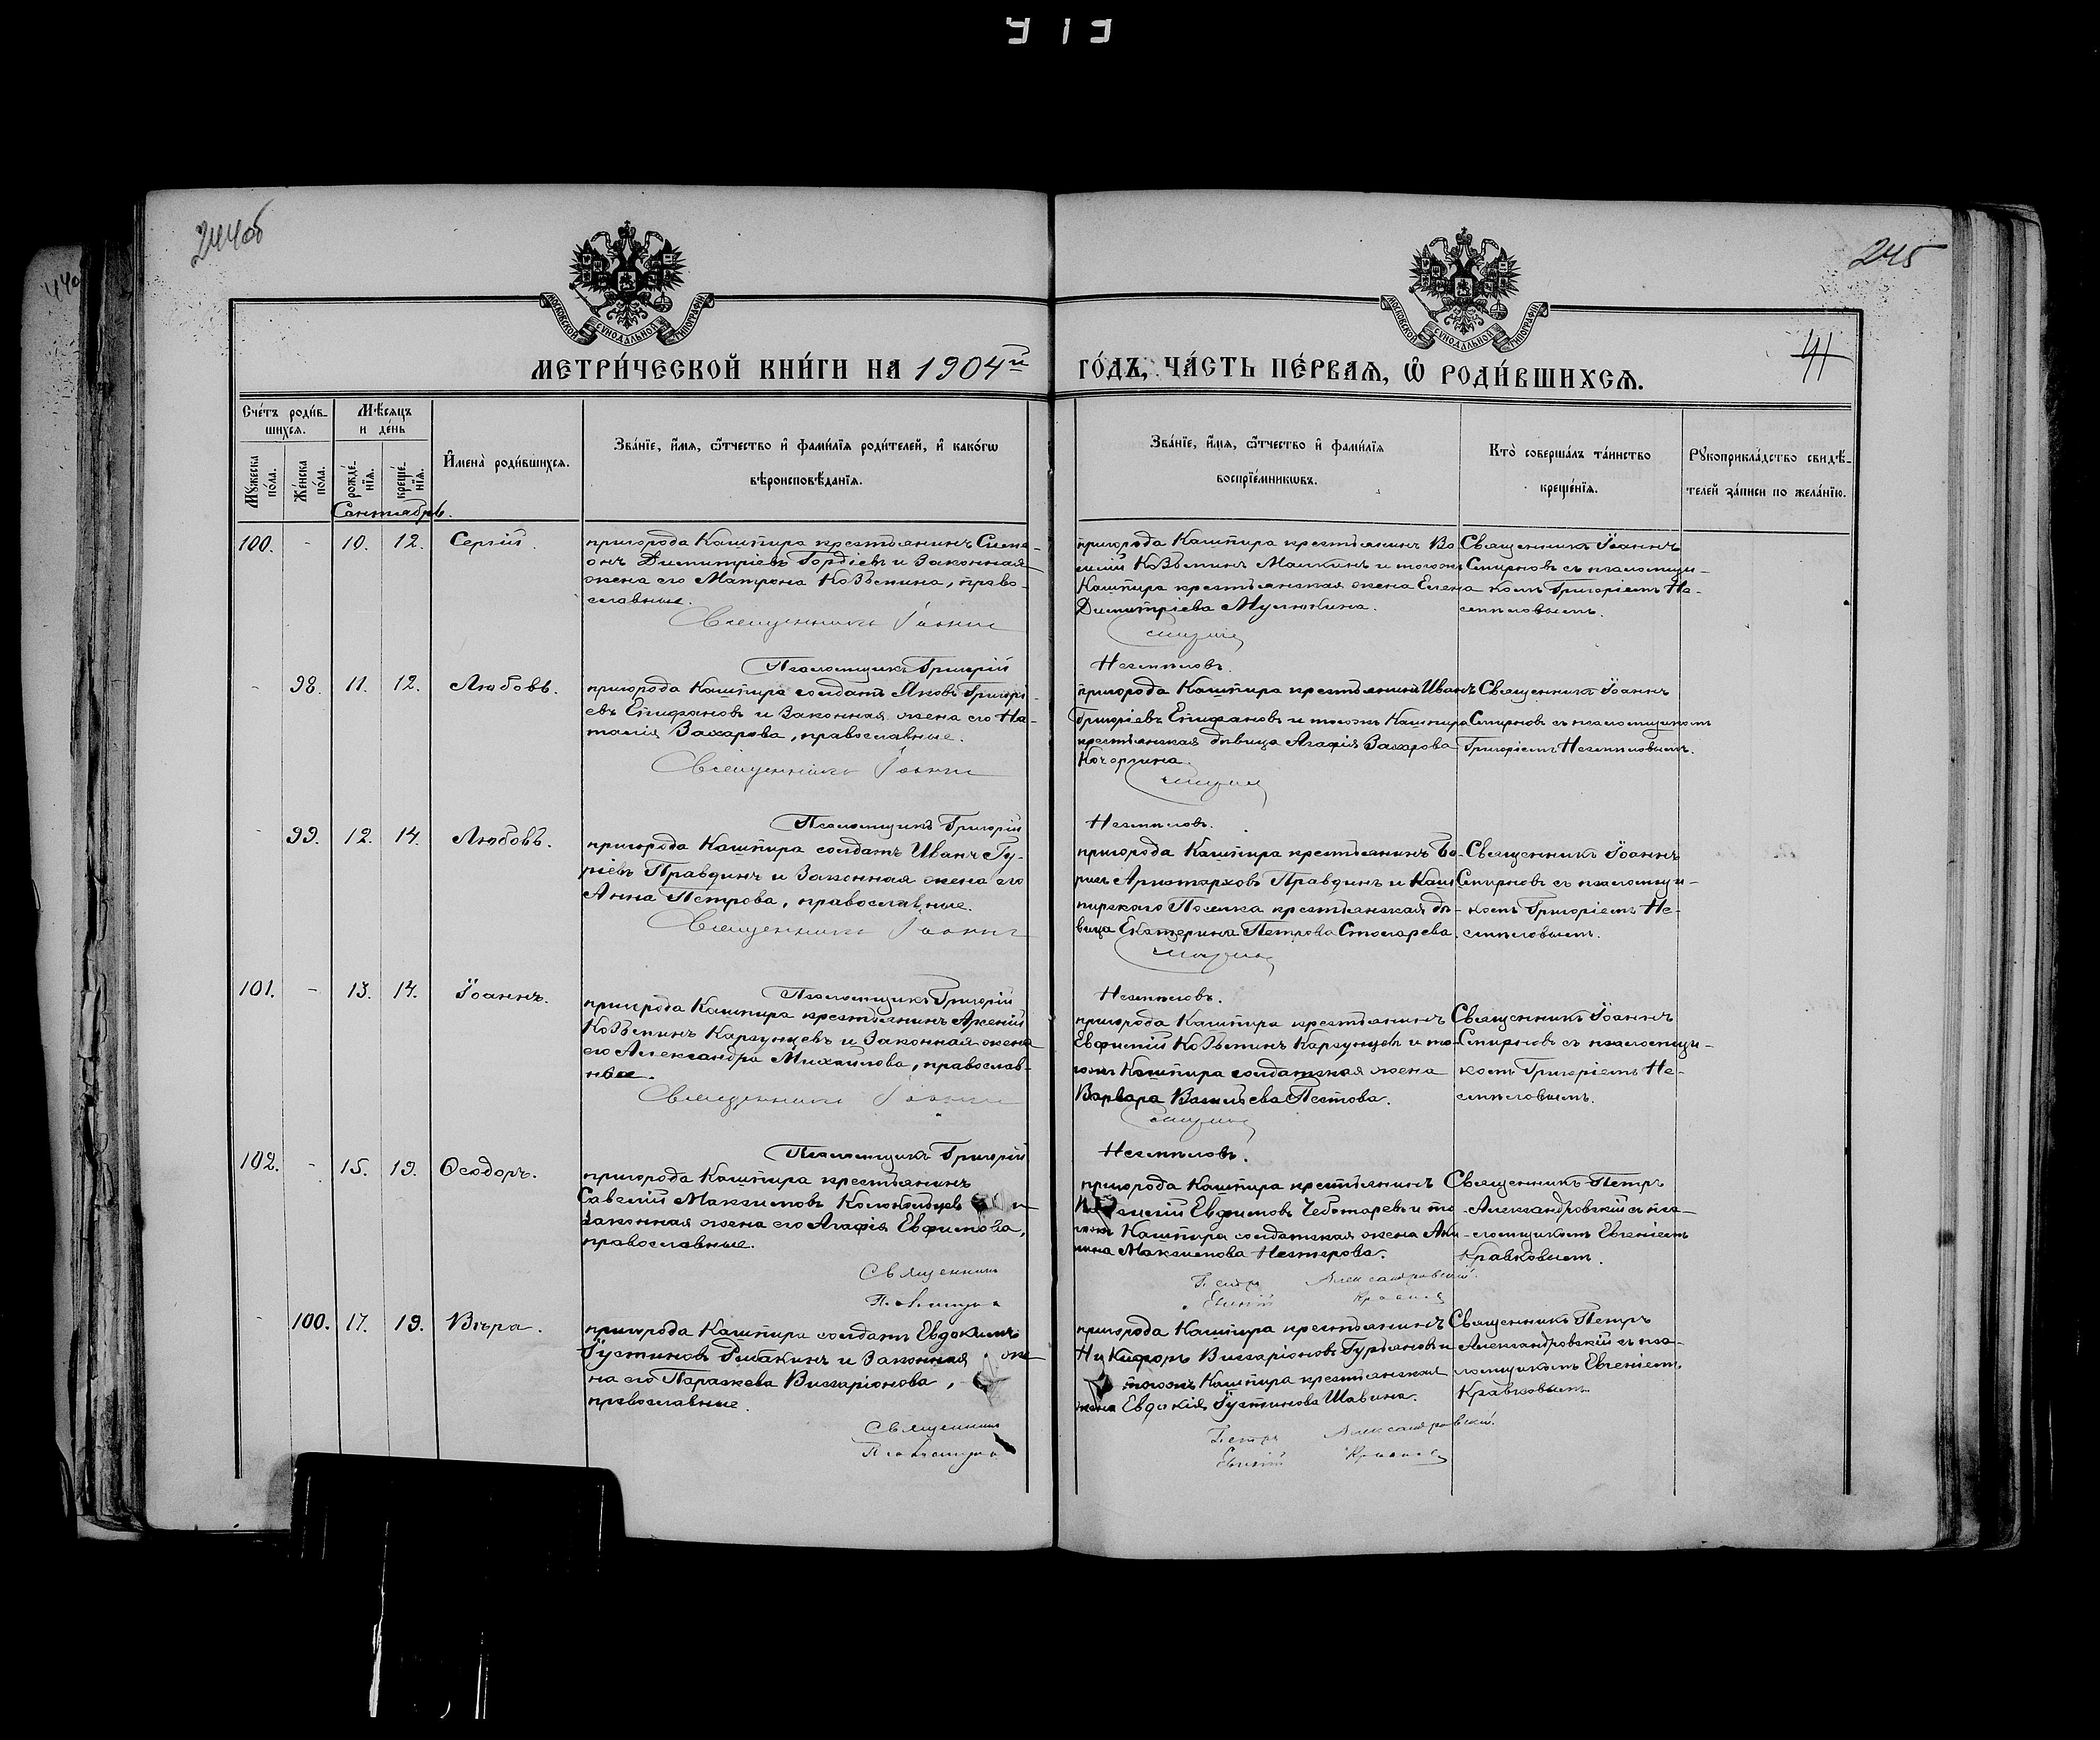 913
244об
245
41
МОСКОВСКОЙ СѴНОДАЛЬНОЙ ТИПОГРАФІИ
МОСКОВСКОЙ СѴНОДАЛЬНОЙ ТИПОГРАФІИ
МЕТРИ́ЧЕСКОЙ КНИ́ГИ НА 1904й ГО́ДЪ, ЧА́СТЬ ПЕ́РВАЯ, Ѡ РОДИ́ВШИХСЯ.
Сче́тъ роди́в-
шихся.
Мꙋжеска по́ла.
Же́нска по́ла.
Мѣ́сяцъ
и де́нь
рожде́-
нїя.
креще́-
нїя.
И҆мена̀ роди́вшихся.
Зва́нїе, и҆́мя, ѻ҆́тчество и҆ фами́лїя роди́телей, и҆ како́гѡ
вѣроисповѣ́данїя.
Зва́нїе, и҆́мя, ѻ҆́тчество и҆ фами́лїя
воспрїе́мникѡвъ.
Кто̀ соверша́лъ та́инство
креще́нїя.
Рꙋкоприкла́дство свидѣ́-
телей за́писи по жела́нїю.
Сентябрь.
100. - 10. 12. Сергій.
пригорода Кашпира крестьянинъ Симе-
онъ Димитріевъ Гордѣевъ и законная
жена его Матрона Козьмина, право-
славные.
Священникъ Іоаннъ
пригорода Кашпира крестьянинъ Ва-
силій Козьминъ Малкинъ и тогожъ
Кашпира крестьянская жена Елена
Димитріева Мулюкина.
Смирновъ
Священникъ Іоаннъ
Смирновъ съ псаломщи-
комъ Григоріемъ Не-
смѣловымъ.
Псаломщикъ Григорій Несмѣловъ.
- 98. 11. 12. Любовь.
пригорода Кашпира солдатъ Яковъ Григорі-
евъ Епифановъ и законная жена его На-
талія Захарова, православные.
Священникъ Іоаннъ
пригорода Кашпира крестьянинъ Иванъ
Григоріевъ Епифановъ и тогожъ Кашпира
крестьянская дѣвица Агафія Захарова
Кочергина.
Смирновъ
Священникъ Іоаннъ
Смирновъ съ псаломщикомъ
Григоріемъ Несмѣловымъ.
Псаломщикъ Григорій Несмѣловъ.
- 99. 12. 14. Любовь.
пригорода Кашпира солдатъ Иванъ Гу-
ріевъ Правдинъ и законная жена его
Анна Петрова, православные.
Священникъ Іоаннъ
пригорода Кашпира крестьянинъ Бо-
рисъ Аристарховъ Правдинъ и Каш-
пирскаго Поселка крестьянская дѣ-
вица Екатерина Петрова Столарева.
Смирновъ
Священникъ Іоаннъ
Смирновъ съ псаломщи-
комъ Григоріемъ Не-
смѣловымъ.
Псаломщикъ Григорій Несмѣловъ.
101. - 13. 14. Іоаннъ.
пригорода Кашпира крестьянинъ Арсеній
Козьминъ Карзунцевъ и законная жена
его Александра Михайлова, православ-
ные.
Священникъ Іоаннъ
пригорода Кашпира крестьянинъ
Евфимій Козьминъ Карзунцевъ и то-
гожъ Кашпира солдатская жена
Варвара Васильева Пестова.
Смирновъ
Священникъ Іоаннъ
Смирновъ съ псаломщи-
комъ Григоріемъ Не-
смѣловымъ.
Псаломщикъ Григорій Несмѣловъ.
102. - 15. 19. Ѳеодоръ.
пригорода Кашпира крестьянинъ
Савелій Максимовъ Колокольцевъ и
законная жена его Агафія Евфимова,
православные.
Священникъ
Псаломщикъ
пригорода Кашпира крестьянинъ
Евфимовъ Чеботаревъ и то-
гожъ Кашпира солдатская жена Аки-
лина Максимова Нестерова.
Петръ Александровскій.
Евгеній Кравковъ
Священникъ Петръ
Александровскій съ пса-
ломщикомъ Евгеніемъ
Кравковымъ.
- 100. 17. 19. Вѣра.
пригорода Кашпира солдатъ Евдокимъ
Іустиновъ Рыбакинъ и законная же-
на его Параскева Виссаріонова,
православные.
Священникъ
Псаломщикъ
пригорода Кашпира крестьянинъ
Никифоръ Виссаріоновъ Гурьяновъ и
тогожъ Кашпира крестьянская
жена Евдокія Іустинова Шавина.
Петръ Александровскій.
Евгеній Кравковъ
Священникъ Петръ
Александровскій съ пса-
ломщикомъ Евгеніемъ
Кравковымъ